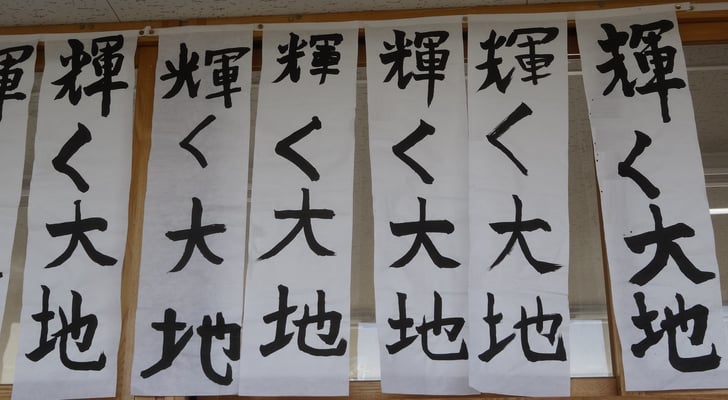 輝く大地
輝く大地
輝く大地
輝く大地
輝く大地
輝く大地